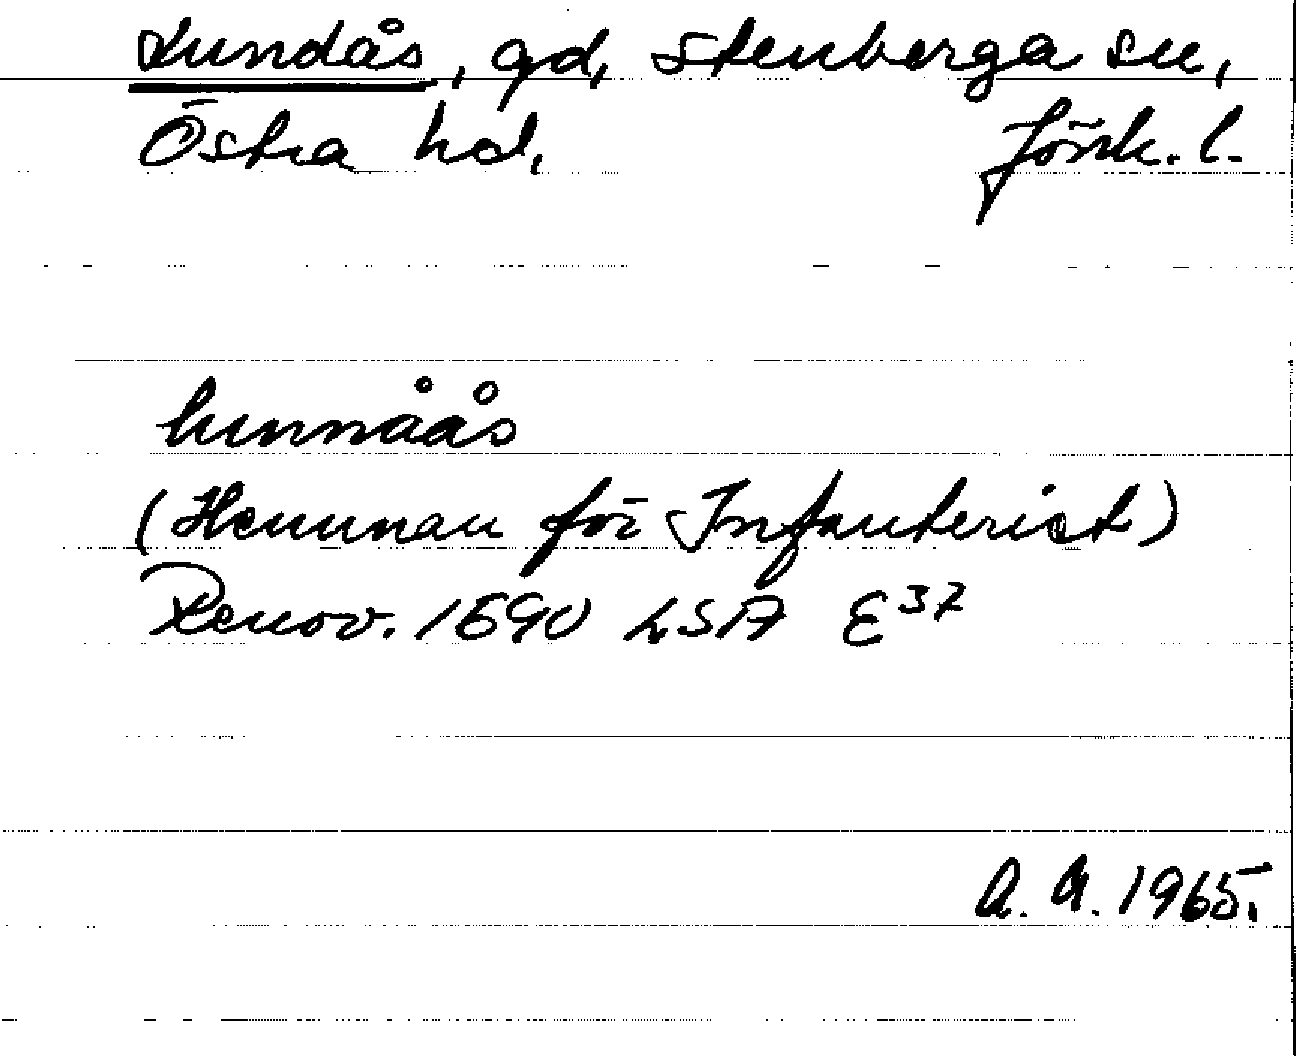 Lundås, gd, Stenberga sn,
Östra hd. Jönk. l.
lunnåås
(Hemman för Infanterist)
Renov. 1690 LSA E³⁷
A. A. 1965.